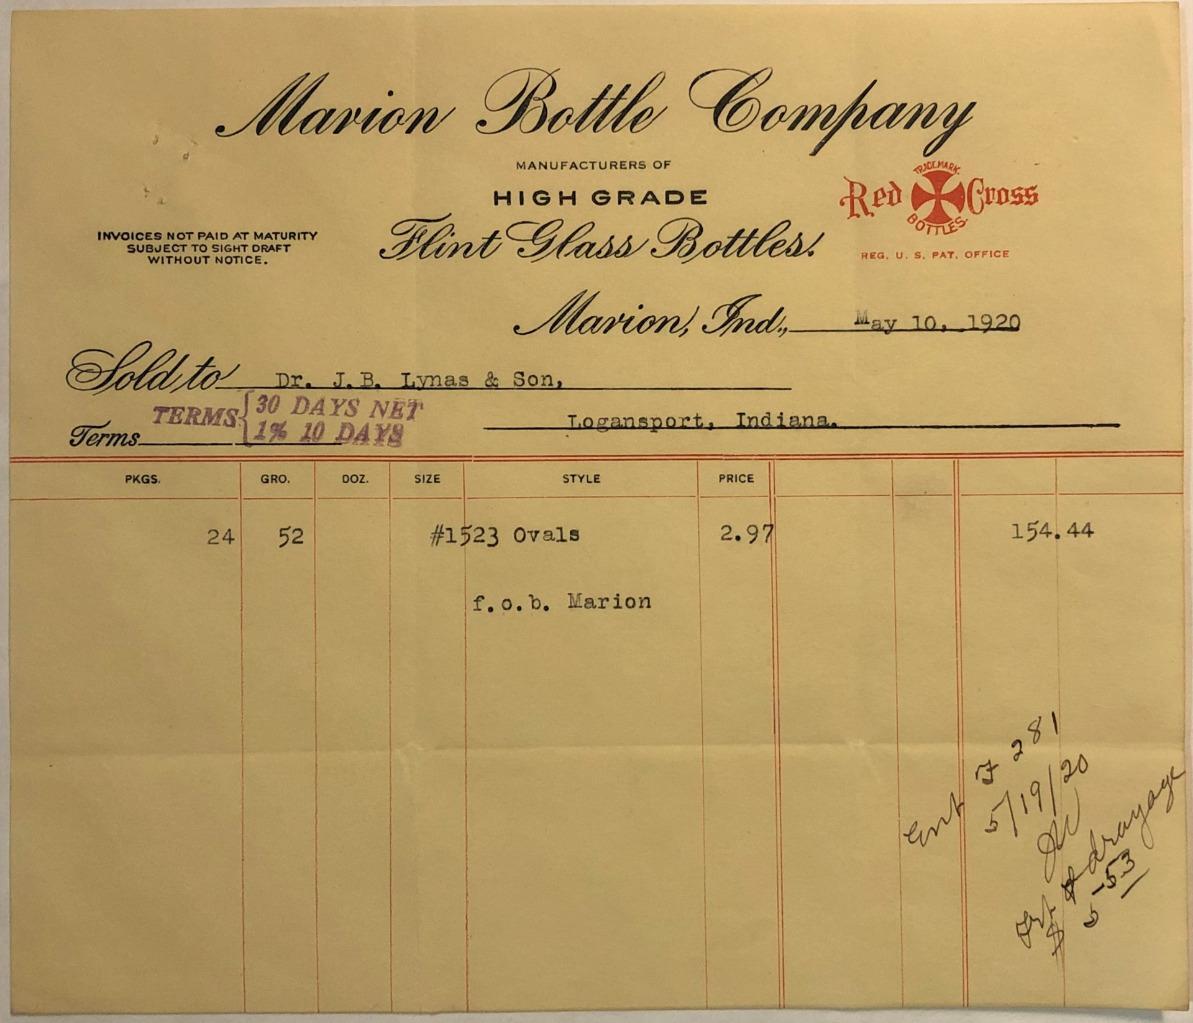 Marion Bottle Company
MANUFACTURERS OF
HIGH GRADE
Flint Glass Bottles.
INVOICES NOT PAID AT MATURITY
SUBJECT TO SIGHT DRAFT
WITHOUT NOTICE.
TRADE MARK
Red Cross
BOTTLES
REG. U. S. PAT. OFFICE
Marion, Ind., May 10, 1920
Sold to Dr. J.B. Lynas & Son,
Logansport, Indiana.
Terms TERMS { 30 DAYS NET
1% 10 DAYS
PKGS. GRO. DOZ. SIZE STYLE PRICE
24 52 #1523 Ovals 2.97 154.44
f.o.b. Marion
Ent F 281
5/19/20
Frt & drayage
$ 5-53